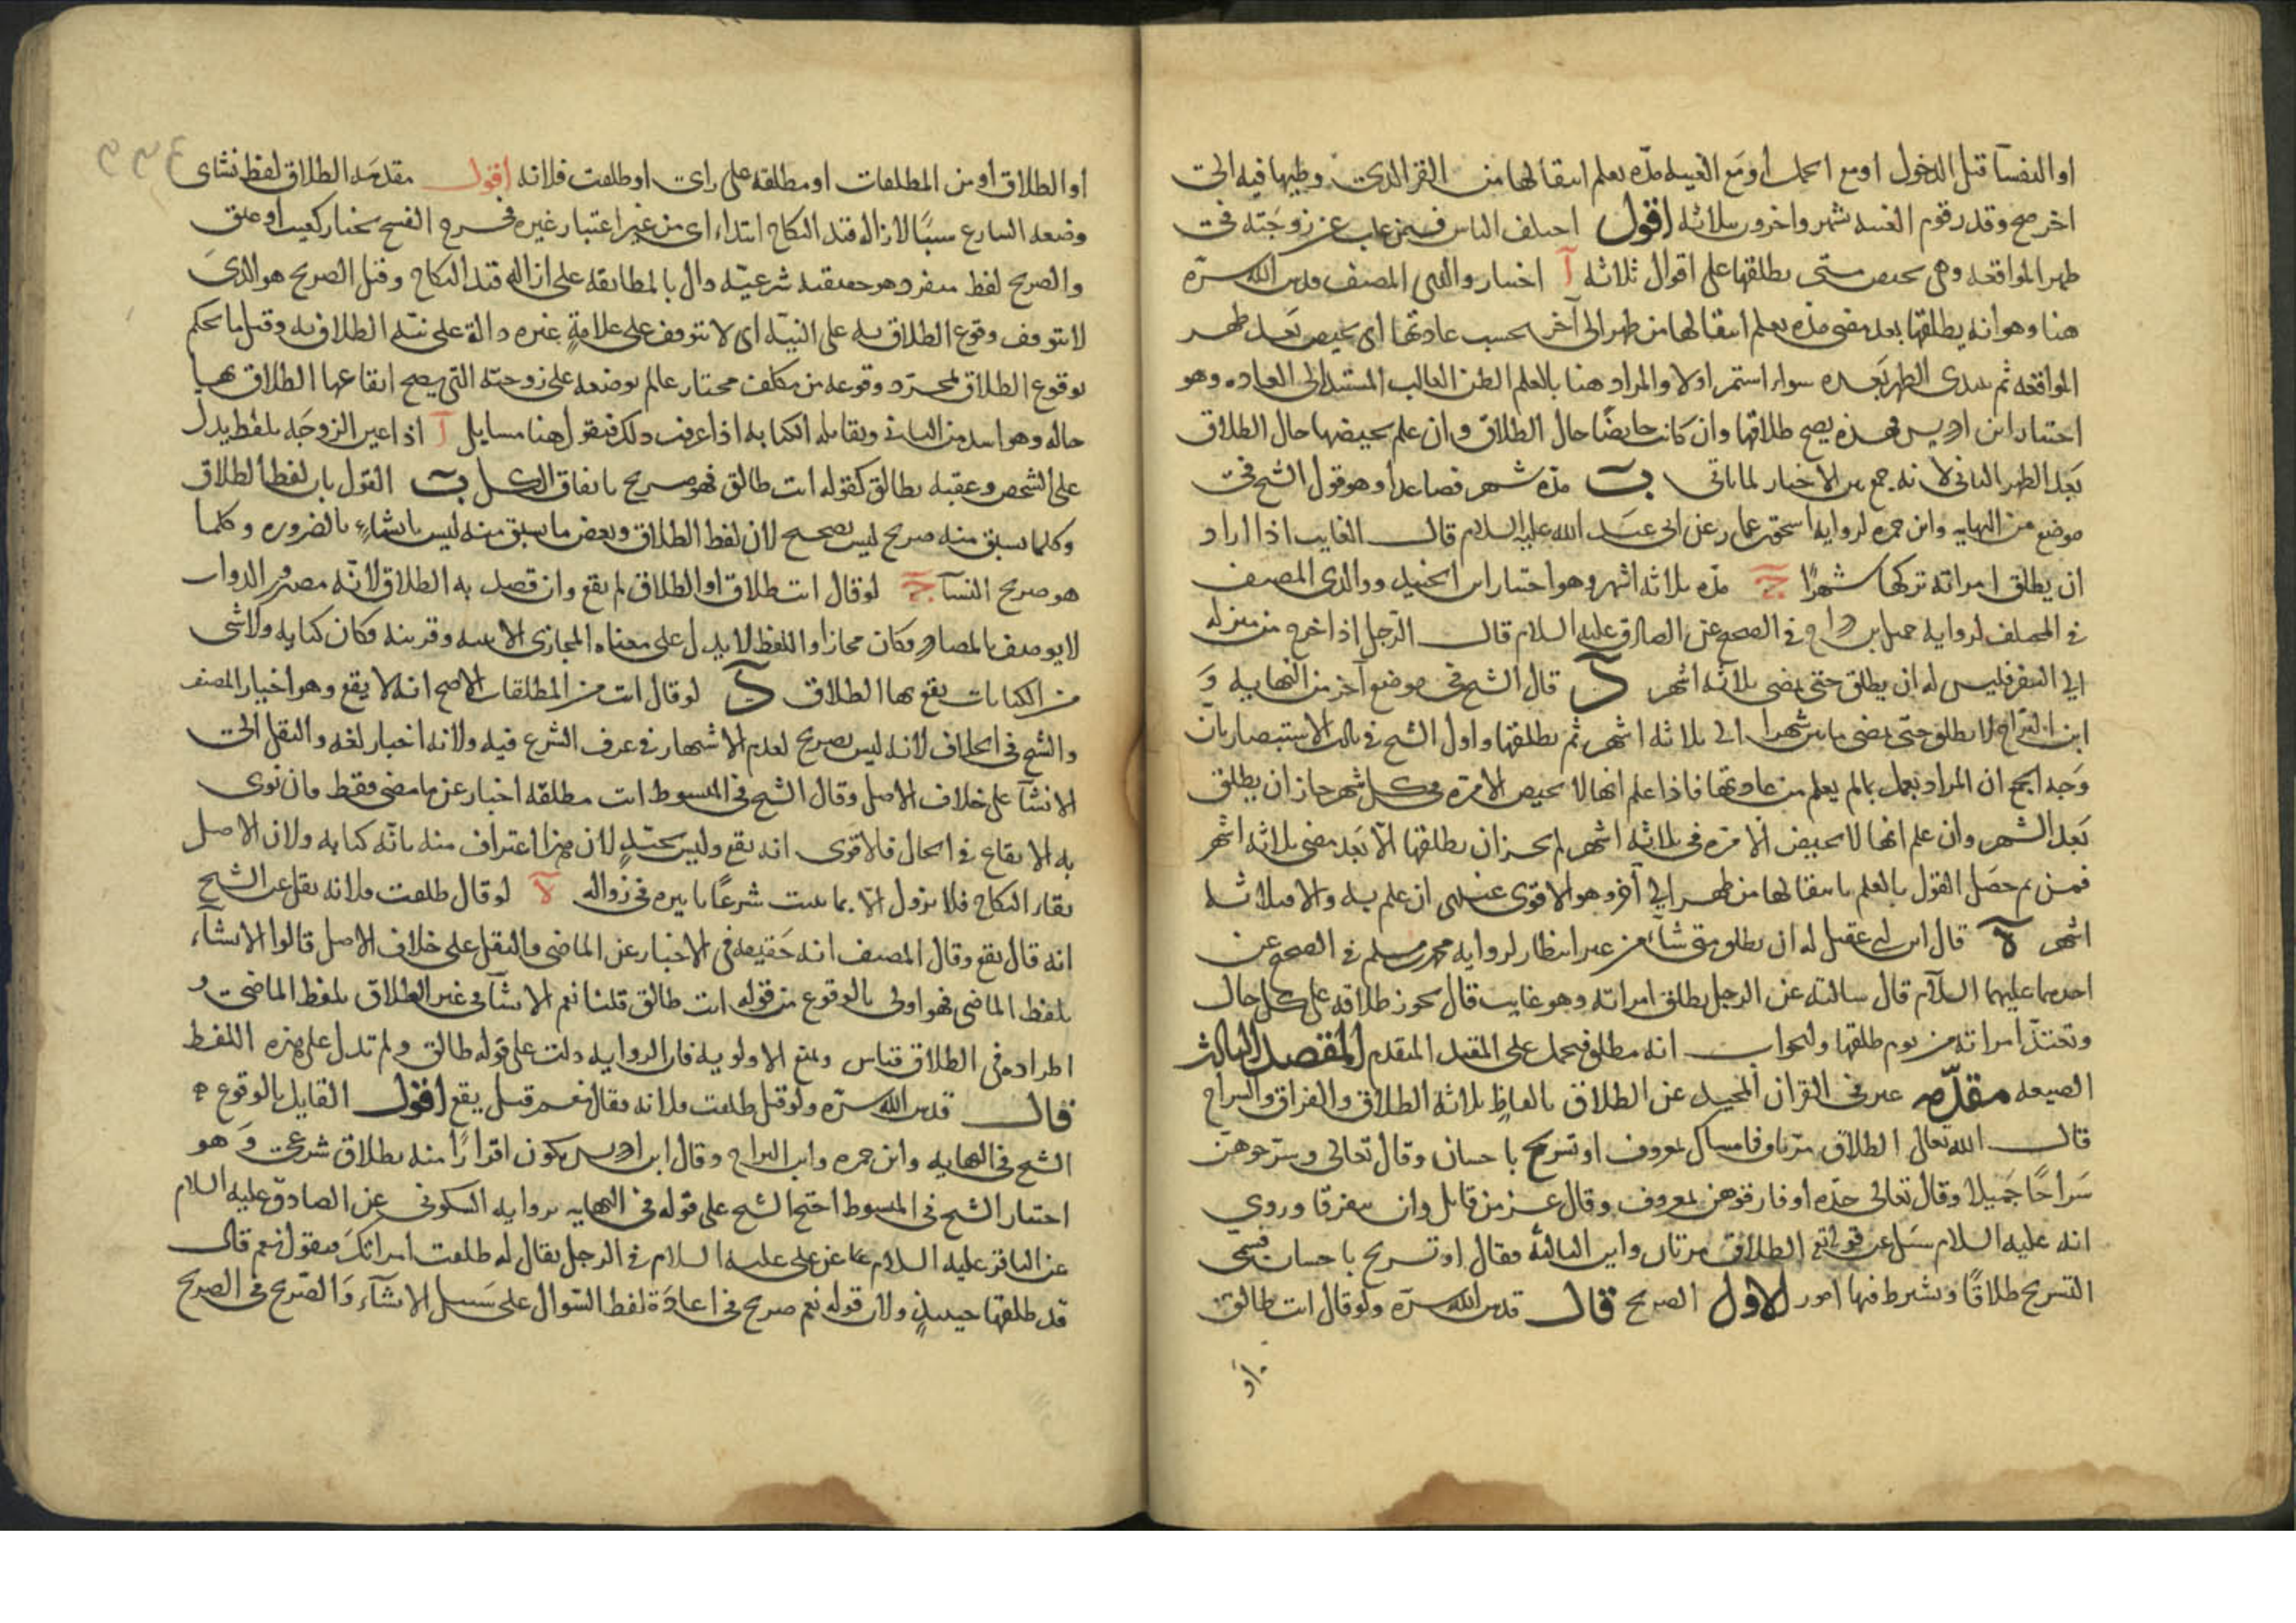 او النفسآ قبل الدخول او مع الحمل او مع الغيبه مدّه يعلم انتقالها من القرء الذي وطيها فيه الى
اخر صح وقدر قوم الغيبه بشهر واخرون بثلاثه اقول اختلف الناس فيمن غاب عن زوجته في
طهر المواقعه وهي تحيض متى يطلقها على اقوال ثلاثه آ اختيار والدي المصنف قدس الله سرّه
هنا وهو انه يطلقها بعد مضى مدّه يعلم انتقالها من طهر الى آخر بحسب عادتها اى تحيض بَعد طهر
المواقعه ثم تبتدى الطهر بَعده سواء استمر اولا والمراد هنا بالعلم الظن الغالب المستند الى العاده وهو
اختيار ابن ادريس فهذه يصح طلاقها وان كانت حايضًا حال الطلاق وان علم بحيضها حال الطلاق
بَعد الطهر الثانى لانه جمع بين الاخبار لما ياتي بَ مدّه شهر فصاعدا وهو قول الشيخ في
موضع من النهايه وابن حمزه لروايه اسحق بن عمار عن ابى عبد الله عليه السلام قال الغايب اذا اراد
ان يطلق امراته تركها شهرًا جَ مدّه ثلاثه اشهر وهو اختيار ابن الجنيد ووالدى المصنف
في المختلف لروايه جميل بن دراج في الصحيح عن الصادق عليه السلام قال الرجل اذا خرج من منزله
الى السفر فليس له ان يطلق حتى يمضى ثلاثه اشهر دَ قال الشيخ في موضع آخر من النهايه وَ
ابن البرّاج لا يطلق حتى يمضى ما بين شهر الى ثلاثه اشهر ثم يطلقها واول الشيخ في ذلك الاستبصار بان
وَجه الجمع ان المراد يعمل بما لم يعلم من عادتها فاذا علم انها لا تحيض الا مرّه في كل شهر جاز ان يطلق
بَعد الشهر وان علم انها لا تحيض الا مرّه في ثلاثه اشهر لم يجز ان يطلقها الا بَعد مضى ثلاثه اشهر
فمن ثم حصَل القول بالعلم بانتقالها من طهر الى آخر وهو الاقوى عندى ان علم به والا فبثلاثه
اشهر هَ قال ابن ابى عقيل له ان يطلق متى شاء من غير انتظار لروايه محمد بن مسلم في الصحيح عن
احدهما عليهما السلام قال سالته عن الرجل يطلق امراته وهو غايب قال يجوز طلاقه على كل حال
وتعتدّ امراته من يوم طلقها والجواب انه مطلق فيحمل على المقيد المتقدم المقصد الثالث
الصيغه مقدّمه عبر في القران المجيد عن الطلاق بالفاظٍ ثلاثه الطلاق والفراق والسراح
قال الله تعالى الطلاق مرّتان فامساك بمعروف او تسريح باحسان وقال تعالى وسرّحوهن
سَراحًا جَميلا وقال تعالى جدّه او فارقوهن بمعروف وقال عز من قايل وان يتفرقا وروى
انه عليه السلام سئل عن قوله تع الطلاق مرتان واين الثالثه فقال او تسريح باحسان فسمى
التسريح طلاقًا ويشترط فيها امور الاول الصريح قال قدس الله سرّه ولو قال انت طالق
او
او الطلاق او من المطلقات او مطلقه على راى او طلقت فلانه اقول مقدمَه الطلاق لفظ نشاى
وضعه الشارع سببًا لازاله قيد النكاح ابتداء اى من غير اعتبار غيره فخرج الفسخ بخيار كعيب او عتق
والصريح لفظ مفرد وهو حقيقه شرعيّه دال بالمطابقه على ازاله قيد النكاح وقيل الصريح هو الذي
لا يتوقف وقوع الطلاق به على النيّه اى لا يتوقف على علامةٍ غيره دالة على نيّه الطلاق به وقيل ما يحكم
بوقوع الطلاق لمجرّد وقوعه من مكلف مختار عالم بوضعه على زوجته التى يصح ايقاعها الطلاق بها
حاله وهو اسد من الثانى ويقابله الكنايه اذا عرفت ذلك فنقول هنا مسايل آ اذا عين الزوجَه بلفظ يدل
على الشخص وعقبه بطالق كقوله انت طالق فهو صريح باتفاق الكل بَ القول بان لفظ الطلاق
وكلما يسبق منه صريح ليس بصحيح لان لفظ الطلاق وبعض ما يسبق منه ليس بانشاءٍ بالضروره وكلما
هو صريح انشآ جَ لو قال انت طلاق او الطلاق لم يقع وان قصد به الطلاق لانّه مصدر والذوات
لا يوصف بالمصادر وكان مجازا واللفظ لا يدل على معناه المجازى الا بنيه وقرينه فكان كنايه ولا شى
من الكنايات يقع بها الطلاق دَ لو قال انت من المطلقات الاصح انه لا يقع وهو اختيار المصنف
والشيخ في الخلاف لانه ليس بصريح لعدم الاشتهار في عرف الشرع فيه ولانه اخبار لغه والنقل الى
الانشآ على خلاف الاصل وقال الشيخ في المبسوط انت مطلقه اخبار عن ما مضى فقط فان نوى
به الايقاع في الحال فالاقوى انه يقع وليس بجيّدٍ لان هذا اعتراف منه بانّه كنايه ولان الاصل
بقاء النكاح فلا يزول الا بما يثبت شرعًا تاثيره في زواله هَ لو قال طلقت فلانه نقل عن الشيخ
انه قال يقع وقال المصنف انه حَقيقه في الاخبار عن الماضى والنقل على خلاف الاصل قالوا الانشآء
بلفظ الماضى فهو اولى بالوقوع من قوله انت طالق قلنا نعم الانشآ في غير الطلاق بلفظ الماضى و
اطراده في الطلاق قياس ويمنع الاولويه فان الروايه دلت على قوله طالق ولم تدل على هذه اللفظ
قال قدس الله سرّه ولو قيل طلقت فلانه فقال نعم قيل يقع اقول القايل بالوقوع
الشيخ في النهايه وابن حمزه وابن البراج وقال ابن ادريس يكون اقرارًا منه بطلاق شرعى وَ هو
اختيار الشيخ في المبسوط احتج الشيخ على قوله في النهايه بروايه السكونى عن الصادق عليه السلام
عن الباقر عليه السلام عن على عليه السلام في الرجل يقال له طلقت امراتك فيقول نعم قال
قد طلقها حينيذٍ ولان قوله نعم صريح في اعادَة لفظ السّوال على سَبيل الانشآء وَالصّريح في الصريح